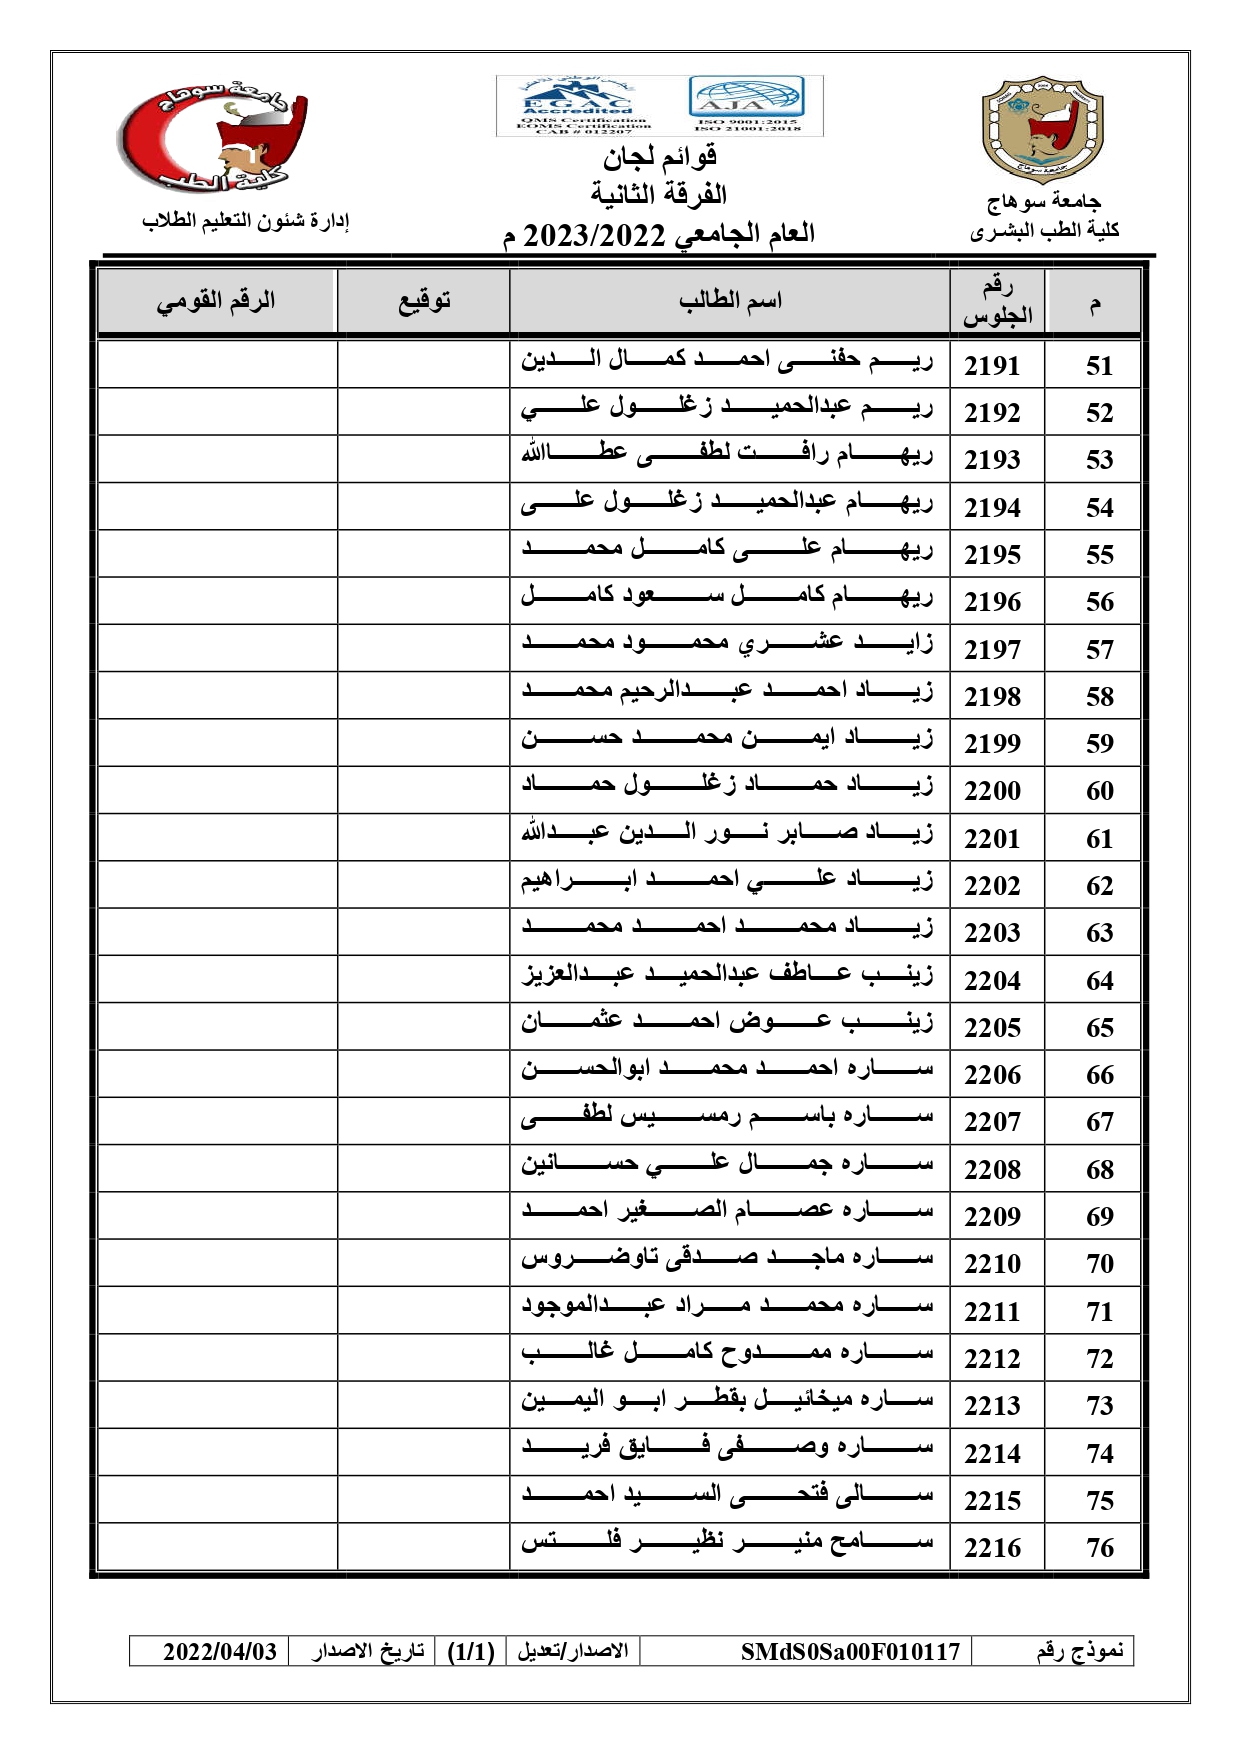 جامعة سوهاج
كلية الطب البشرى
EGAC
Accredited
QMS Certification
EOMS Certification
CAB # 012207
AJA
ISO 9001:2015
ISO 21001:2018
قوائم لجان
الفرقة الثانية
العام الجامعي 2023/2022 م
جامعة سوهاج
كلية الطب
إدارة شئون التعليم الطلاب
م رقم الجلوس اسم الطالب توقيع الرقم القومي
51 2191 ريم حفنى احمد كمال الدين
52 2192 ريم عبدالحميد زغلول علي
53 2193 ريهام رافت لطفى عطاالله
54 2194 ريهام عبدالحميد زغلول على
55 2195 ريهام على كامل محمد
56 2196 ريهام كامل سعود كامل
57 2197 زايد عشري محمود محمد
58 2198 زياد احمد عبدالرحيم محمد
59 2199 زياد ايمن محمد حسن
60 2200 زياد حماد زغلول حماد
61 2201 زياد صابر نور الدين عبدالله
62 2202 زياد علي احمد ابراهيم
63 2203 زياد محمد احمد محمد
64 2204 زينب عاطف عبدالحميد عبدالعزيز
65 2205 زينب عوض احمد عثمان
66 2206 ساره احمد محمد ابوالحسن
67 2207 ساره باسم رمسيس لطفى
68 2208 ساره جمال علي حسانين
69 2209 ساره عصام الصغير احمد
70 2210 ساره ماجد صدقى تاوضروس
71 2211 ساره محمد مراد عبدالموجود
72 2212 ساره ممدوح كامل غالب
73 2213 ساره ميخائيل بقطر ابو اليمين
74 2214 ساره وصفى فايق فريد
75 2215 سالى فتحى السيد احمد
76 2216 سامح منير نظير فلتس
نموذج رقم SMdS0Sa00F010117 الاصدار/تعديل (1/1) تاريخ الاصدار 2022/04/03